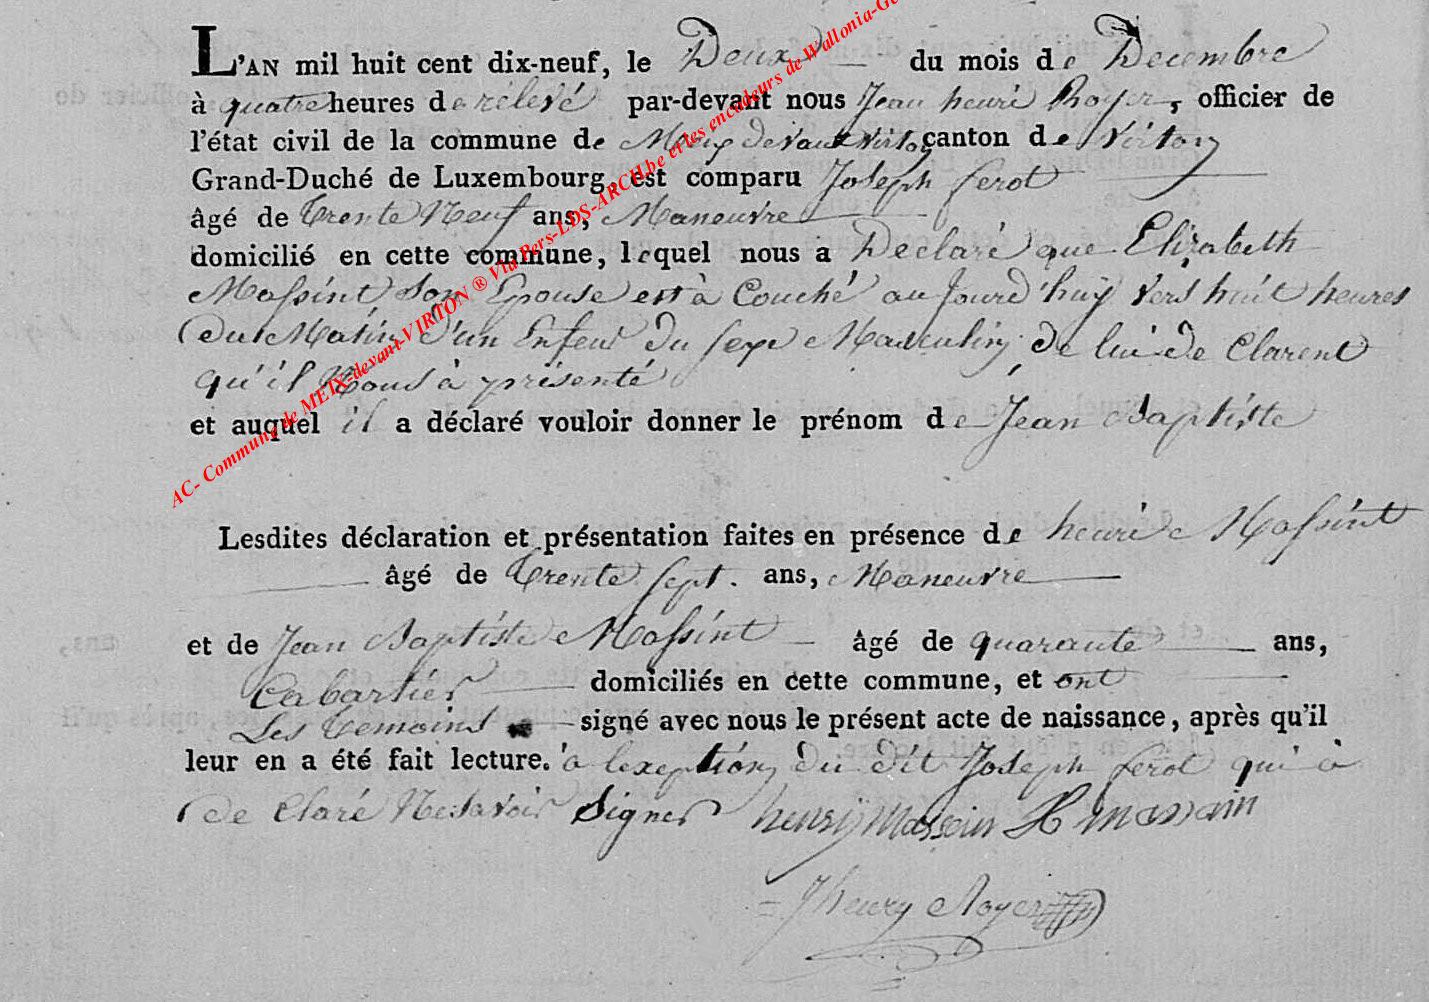 L'AN mil huit cent dix-neuf, le Deux du mois de Decembre
à quatre heures de relevé par-devant nous Jean henri Royer, officier de
l'état civil de la commune de Meix devant virton canton de virton
Grand-Duché de Luxembourg, est comparu Joseph ferot
âgé de Trente Neuf ans, Maneuvre
domicilié en cette commune, lequel nous a Declaré que Elizabeth
Massint Son Epouse est à Couché aujourd'huy vers huit heures
Du Matin d'un Enfent du sexe Masculin de lui de Clarent
qu'il Nous à présenté
et auquel il a déclaré vouloir donner le prénom de Jean Baptiste
Lesdites déclaration et présentation faites en présence de henri Massint
âgé de Trente sept. ans, Maneuvre
et de Jean Baptiste Massint âgé de quarante ans,
Cabartier domiciliés en cette commune, et ont
Les temoins signé avec nous le présent acte de naissance, après qu'il
leur en a été fait lecture. à lexeption du dit Joseph ferot qui à
de Claré Ne savoir Signer henrij Massein H massain
Jhenry Royer
AC- Commune de MEIX-devant-VIRTON ® Via Pers-LDS-ARCH.be et les encodeurs de Wallonia-Ge